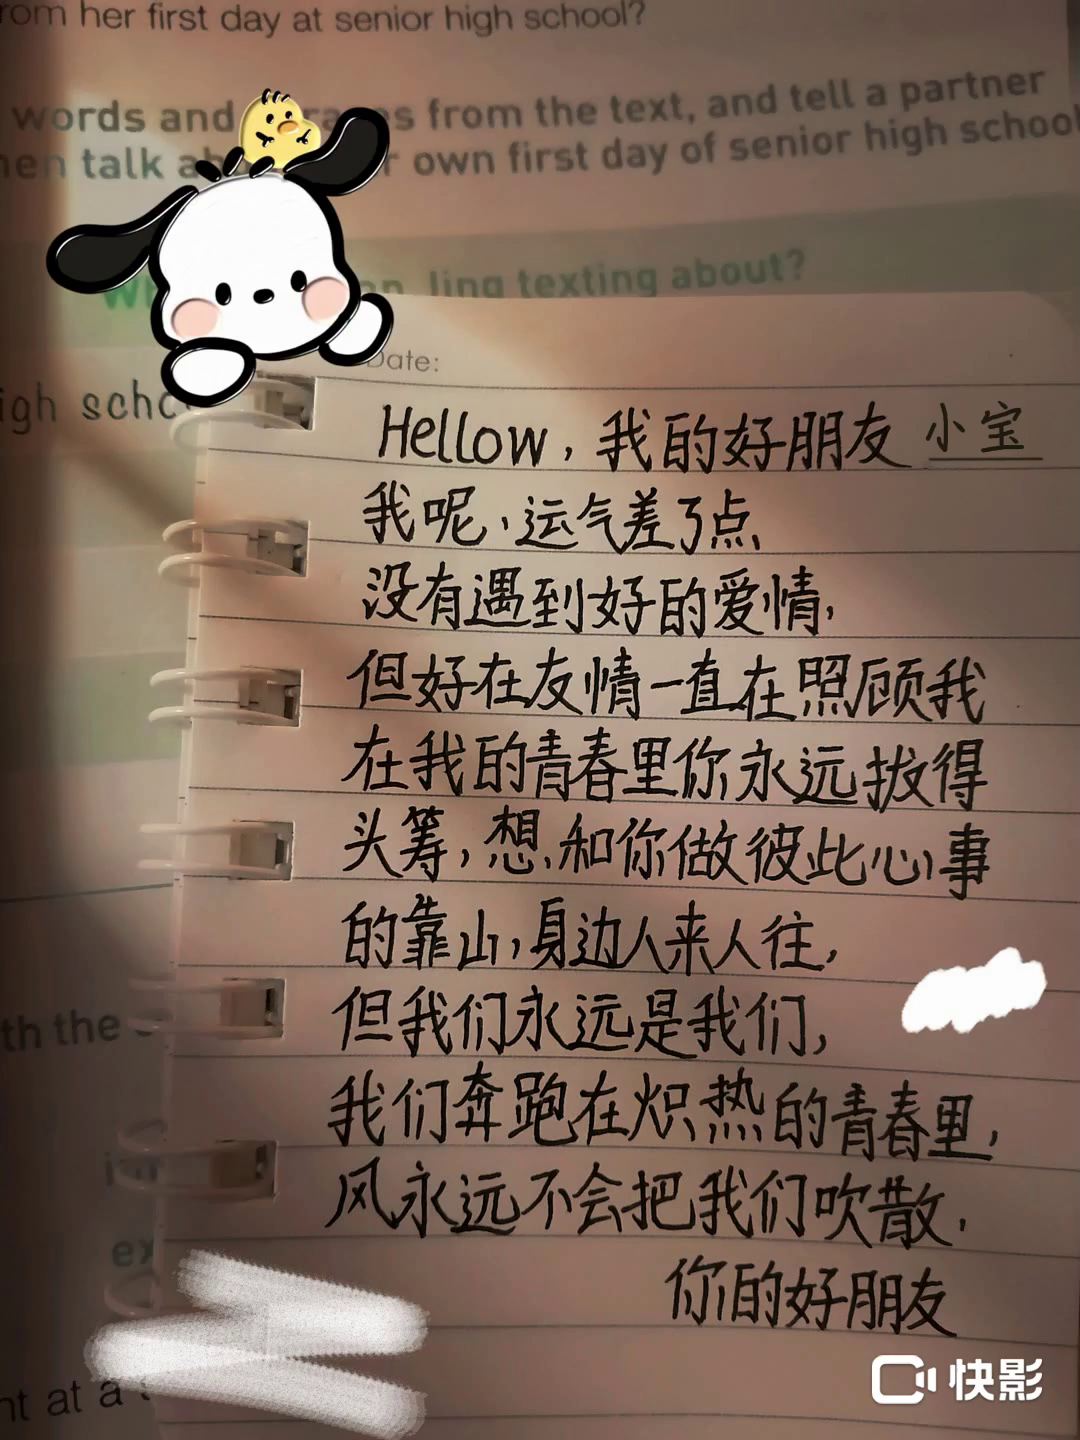 rom her first day at senior high school?
words and
s from the text, and tell a partner
hen talk
own first day of senior high school
ling texting about?
Date:
igh
Hellow, 我的好朋友 小宝
我呢, 运气差了点
没有遇到好的爱情,
但好在友情一直在照顾我
在我的青春里你永远拔得
头筹, 想和你做彼此心事
的靠山, 身边人来人往,
但我们永远是我们,
th the
我们奔跑在炽热的青春里,
风永远不会把我们吹散,
你的好朋友
nt at a
快影